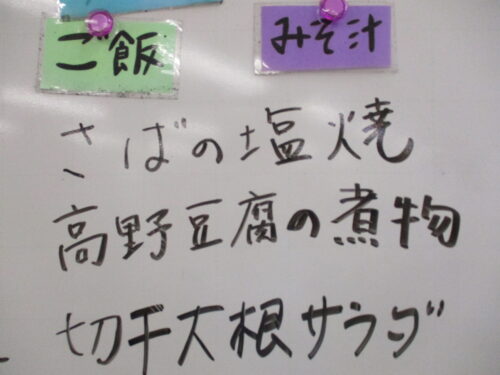 ご飯 みそ汁
さばの塩焼
高野豆腐の煮物
切干大根サラダ